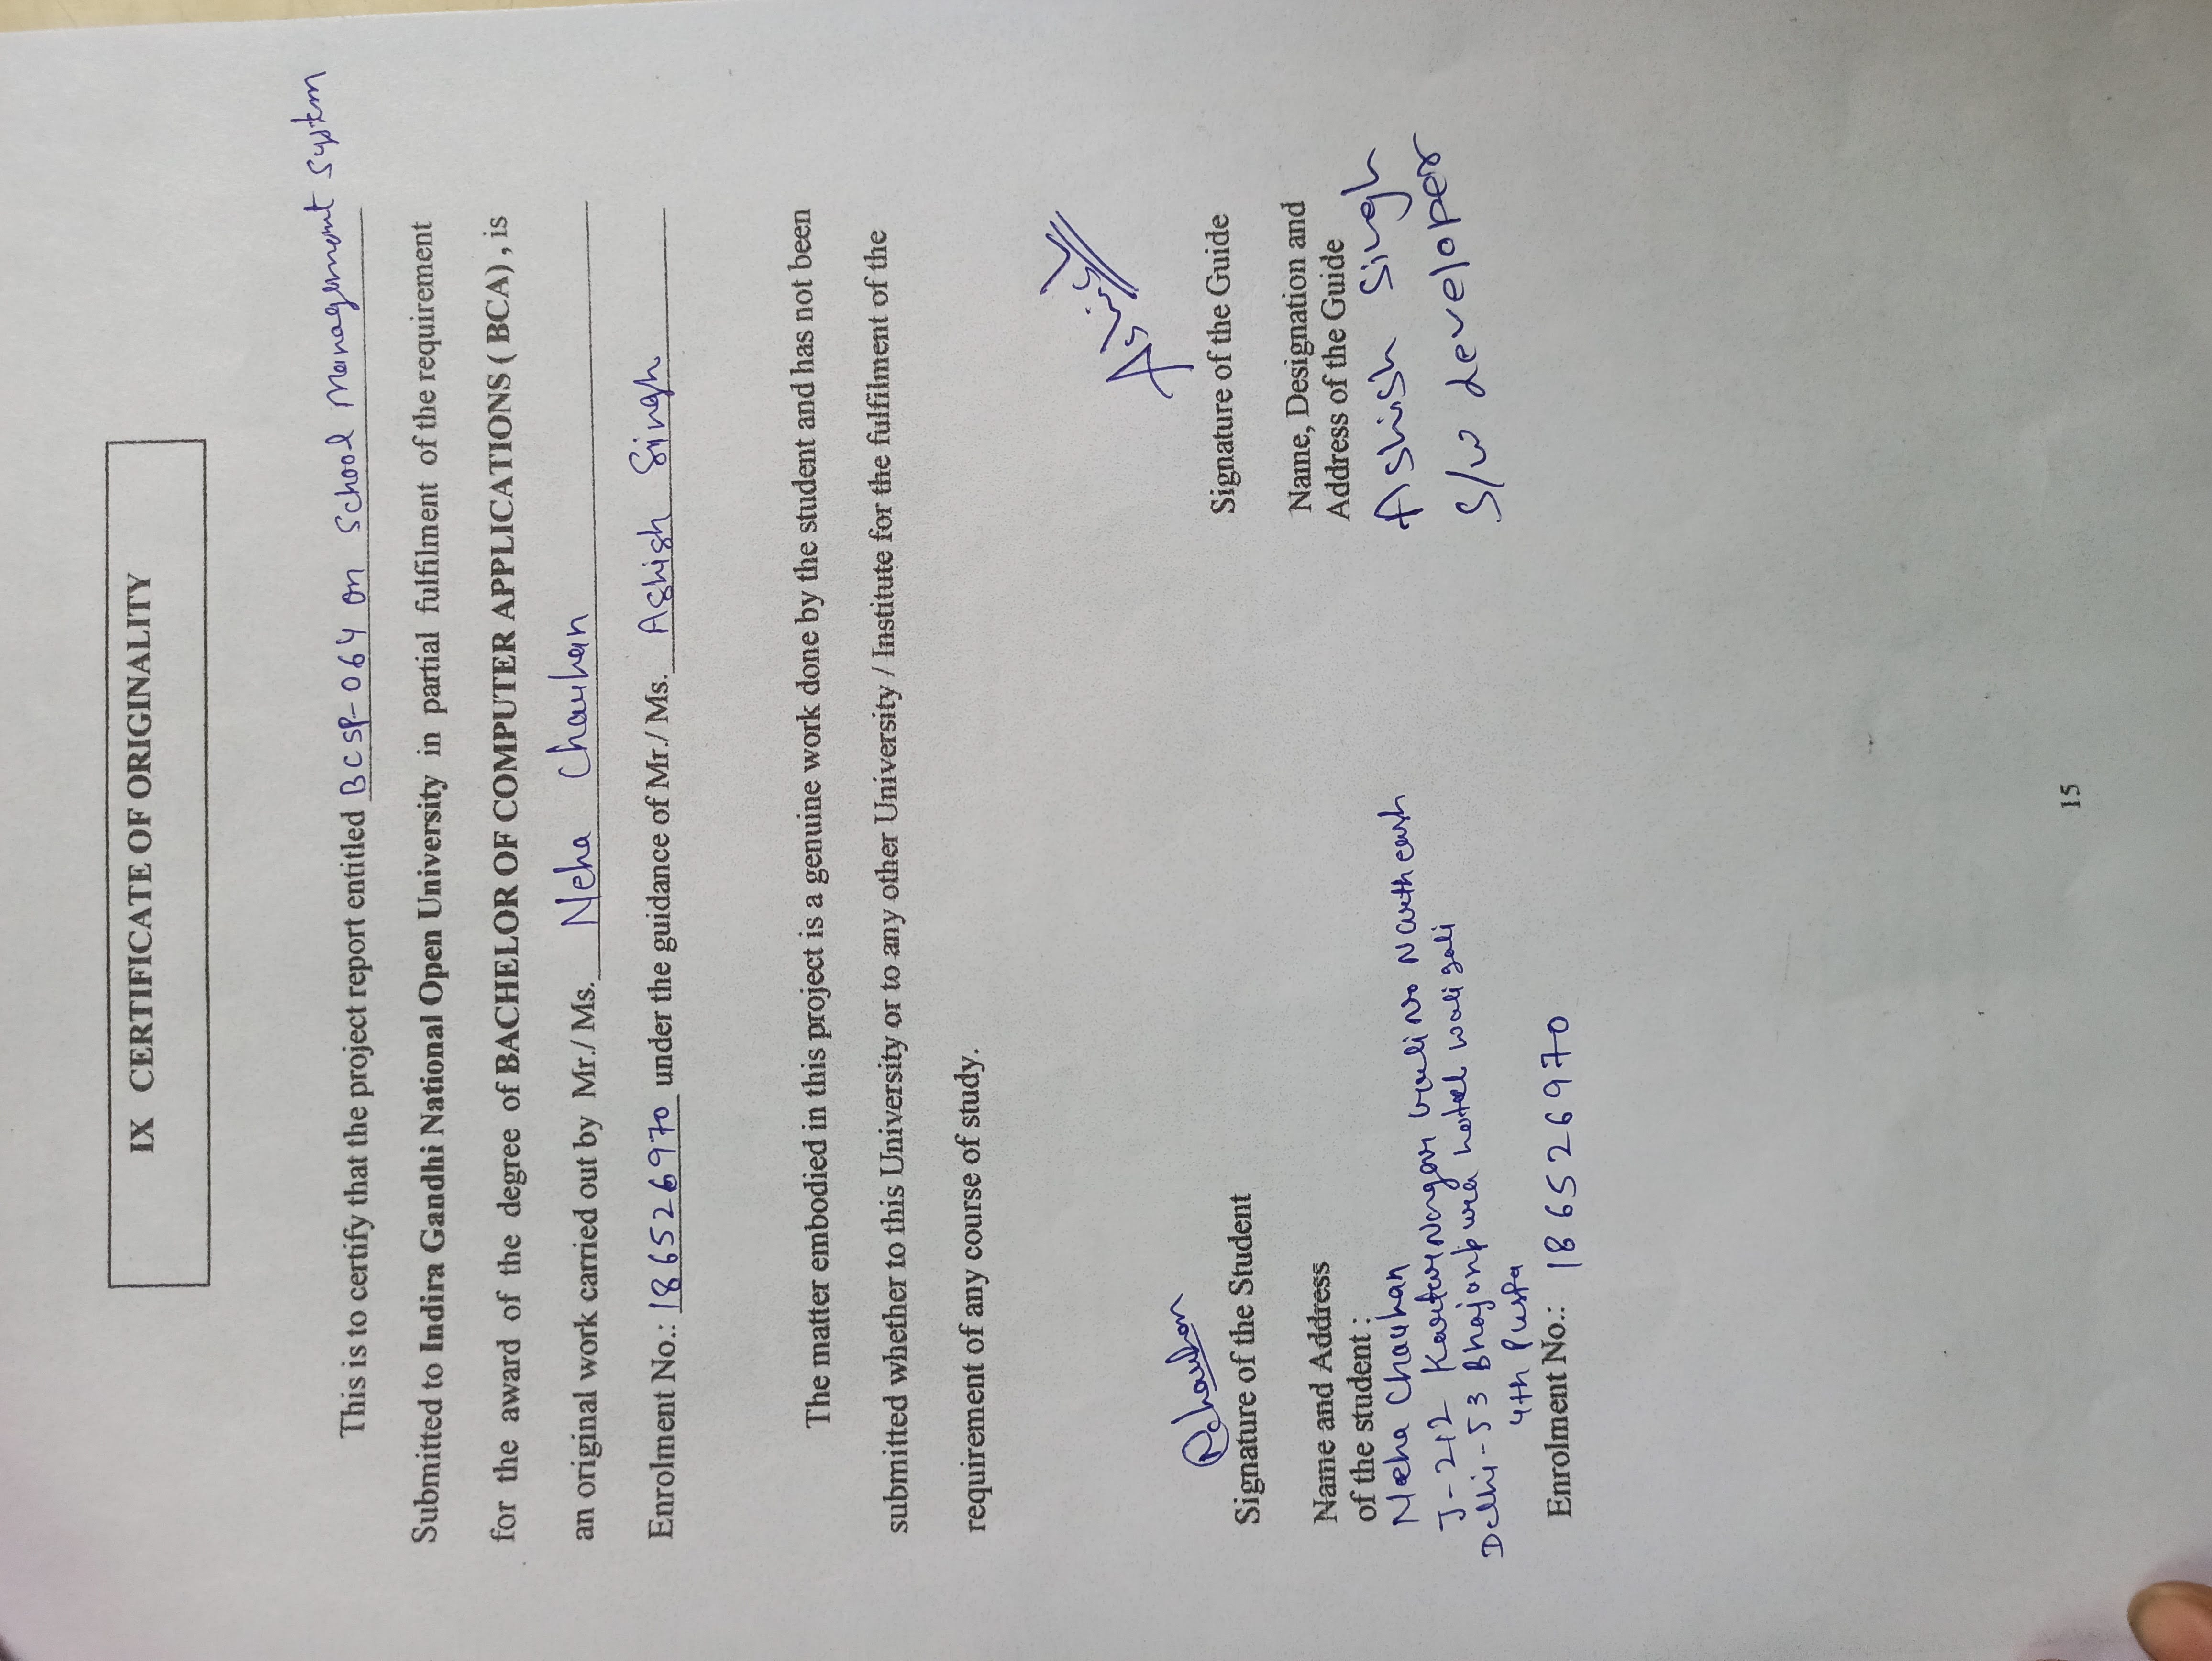 IX CERTIFICATE OF ORIGINALITY
This is to certify that the project report entitled BCSP-064 on School Management System
Submitted to Indira Gandhi National Open University in partial fulfilment of the requirement
for the award of the degree of BACHELOR OF COMPUTER APPLICATIONS ( BCA) , is
an original work carried out by Mr./ Ms. Neha Chauhan
Enrolment No.: 186526970 under the guidance of Mr./ Ms. Ashish Singh
The matter embodied in this project is a genuine work done by the student and has not been
submitted whether to this University or to any other University / Institute for the fulfilment of the
requirement of any course of study.
Signature of the Student
Signature of the Guide
Name and Address
of the student :
Neha Chauhan
J-212 Kartar Nagar no North east
Delhi-53 Bhajanpura hotel wali gali
4th Pusta
Enrolment No.: 186526970
Name, Designation and
Address of the Guide
Ashish Singh
S/W developer
15